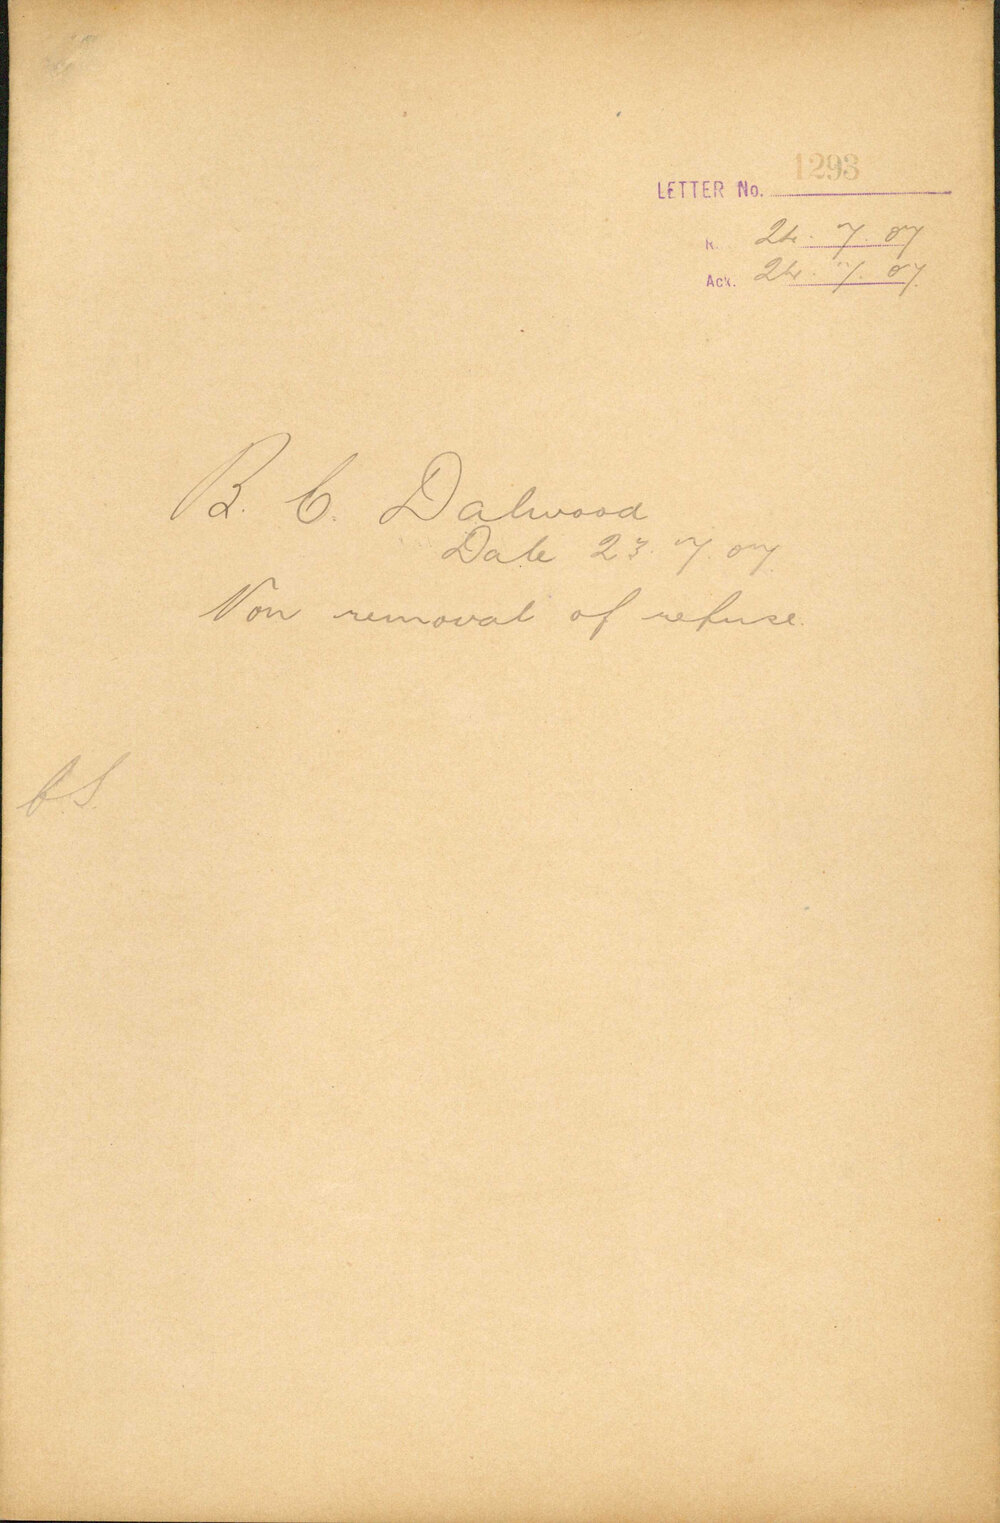 LETTER No. 1293
R. 24. 7. 07
Ack. 24. 7. 07.
B. C. Dalwood
Date 23. 7. 07
Non removal of refuse.